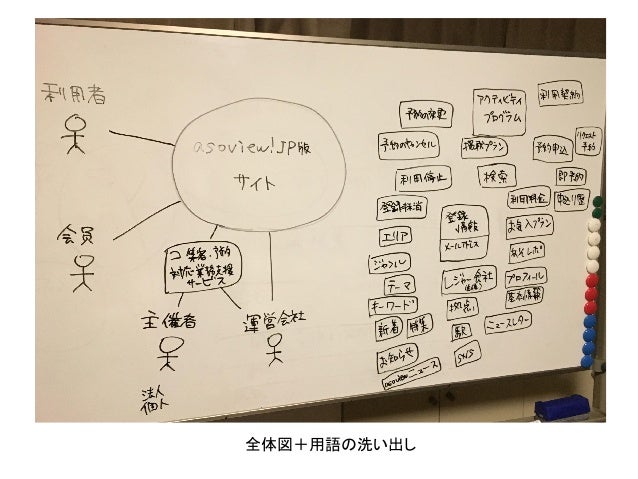 利用者
asoview! JP版
サイト
会員
集客・予約
対応業務支援
サービス
主催者
運営会社
法人
個人
予約の変更
アクティビティ
プログラム
利用契約
予約のキャンセル
掲載プラン
予約申込
リクエスト
予約
利用停止
検索
即予約
登録抹消
登録
情報
メールアドレス
利用料金
申込履歴
エリア
お気入プラン
ジャンル
レジャー会社
プロフィール
テーマ
基本情報
キーワード
拠点
新着
特集
駅
ニュースレター
お知らせ
SNS
asoviewニュース
全体図＋用語の洗い出し